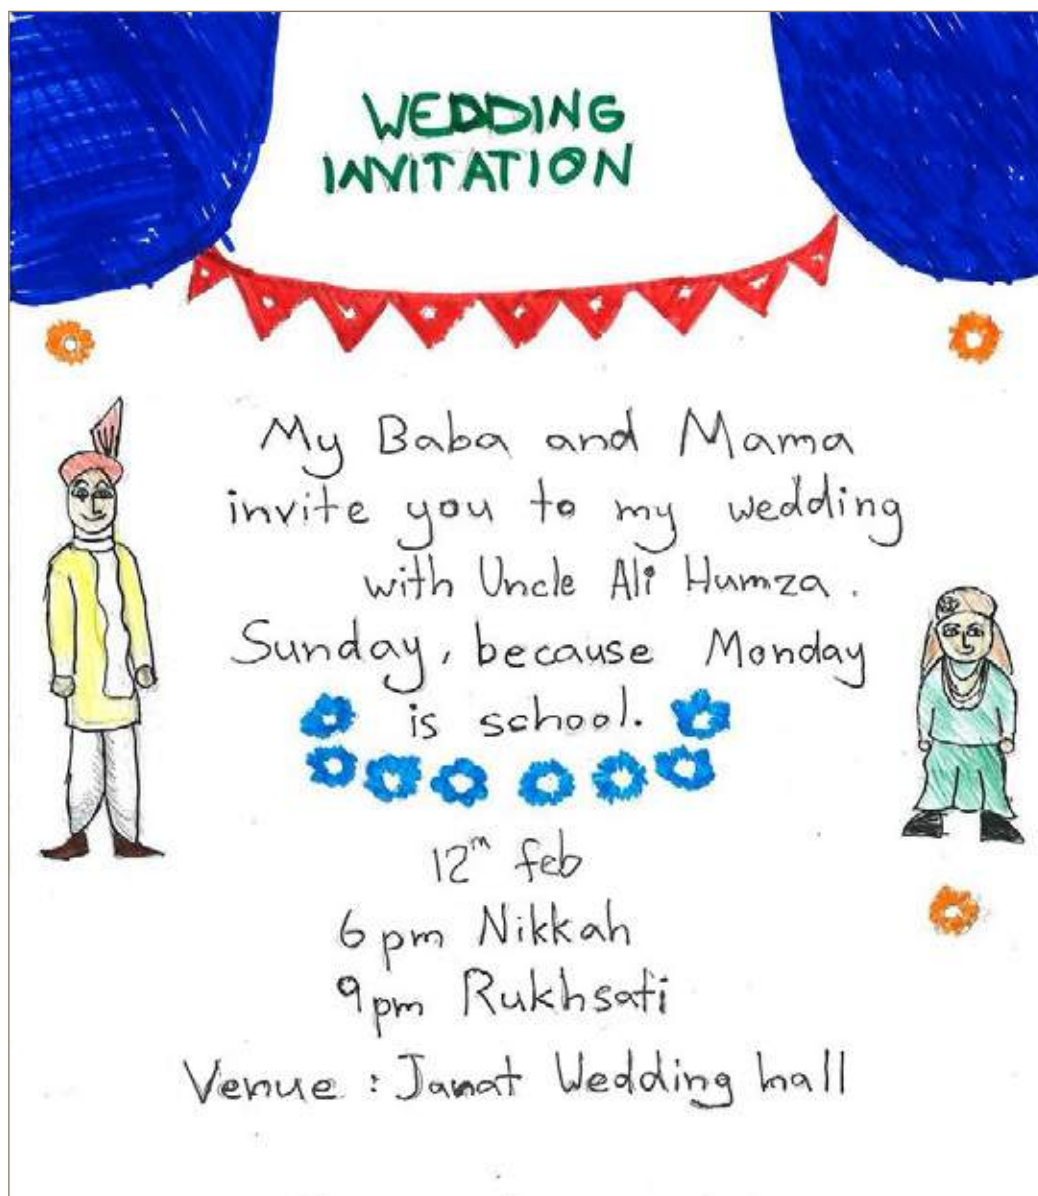 WEDDING
INVITATION
My Baba and Mama
invite you to my wedding
with Uncle Ali Humza.
Sunday, because Monday
is school.
12th feb
6 pm Nikkah
9pm Rukhsati
Venue : Janat Wedding hall